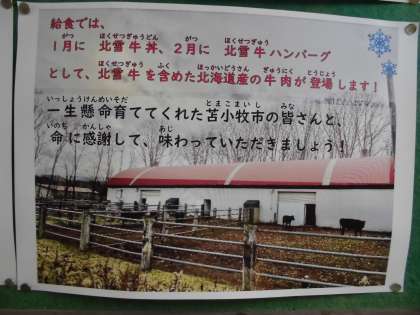 給食では、
１月に 北雪牛丼、２月に 北雪牛ハンバーグ
として、北雪牛を含めた北海道産の牛肉が登場します！
一生懸命育ててくれた苫小牧市の皆さんと、
命に感謝して、味わっていただきましょう！